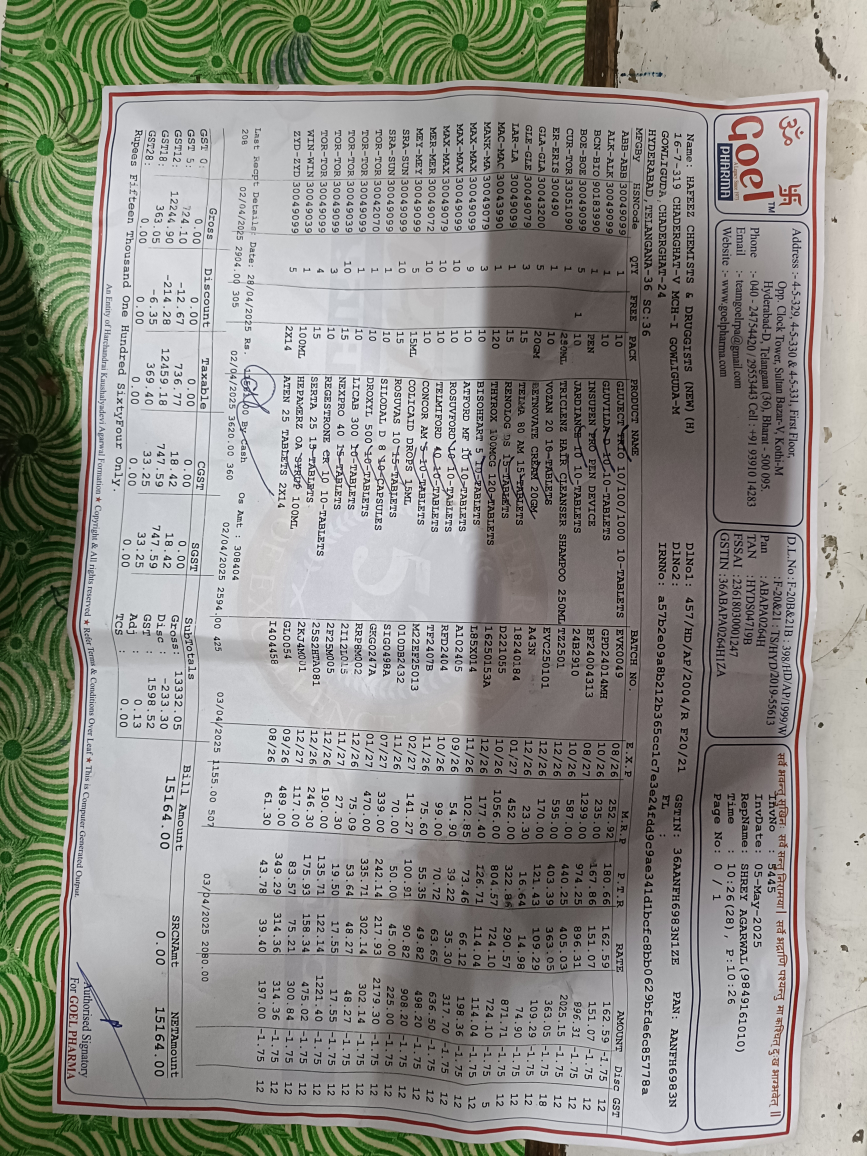 Goel™
PHARMA
Address :- 4-5-329, 4-5-330 & 4-5-331, First Floor,
Opp. Clock Tower, Sultan Bazar-V, Kothi-M
Hyderabad-D, Telangana (36), Bharat - 500 095.
Phone :- 040 - 24754420 / 29553443 Cell : +91 93910 14283
Email :- teamgoelrpa@gmail.com
Website :- www.goelpharma.com
D.L.No :F-20B&21B : 398/HD/AP/1999/W
:F-20&21 : TS/HYD/2019-55613
Pan :ABAPA0264H
TAN :HYDS04719B
FSSAI :23618030001247
GSTIN :36ABAPA0264H1ZA
सर्वे भवन्तु सुखिनः सर्वे सन्तु निरामयाः। सर्वे भद्राणि पश्यन्तु मा कश्चित् दुःख भाग्भवेत्॥
InvNo : 5445
InvDate: 05-May-2025
RepName: SHREY AGARWAL(9849161010)
Time : 10:26(28), P:10:26
Page No: 0 / 1
Name: HAFERZ CHEMISTS & DRUGGISTS (NEW) (H)
16-7-319 CHADERGHAT-V MCH-I GOWLIGUDA-M
GOWLIGUDA, CHADERGHAT-24
HYDERABAD, TELANGANA-36 SC:36
DlNo1: 457/HD/AP/2004/R F20/21
DlNo2: FL :
GSTIN: 36AANFH6983N1ZE PAN: AANFH6983N
IRNNo: a57b2e09a8b212b365cc1c7e3e24fdd9c9ae341d1bcfc8bb0629bfde6c85778a
MFGBy HSNCode QTY FREE PACK PRODUCT NAME BATCH NO. E.X.P M.R.P P.T.R RATE AMOUNT Disc GST
ABB-ABB 30049099 1 10 GLUJECT TRIO 10/100/1000 10-TABLETS EVK0049 08/26 252.92 180.66 162.59 162.59 -1.75 12
ALK-ALK 30049099 1 10 GLUVILDA D 10 10-TABLETS GPD24014MH 10/26 235.00 167.86 151.07 151.07 -1.75 12
BCN-BIO 90183990 1 PEN INSUPEN PRO PEN DEVICE BF24004313 08/27 1299.00 974.25 896.31 896.31 -1.75 12
BOE-BOE 30049099 5 1 10 JARDIANCE 10 10-TABLETS 24B2910 10/26 587.00 440.25 405.03 2025.15 -1.75 12
CUR-TOR 33051090 1 250ML TRICLENZ HAIR CLEANSER SHAMPOO 250ML TZ2501 12/26 595.00 403.39 363.05 363.05 -1.75 18
ER-ERIS 300490 1 10 VOZAN 20 10-TABLETS EVC250101 12/26 170.00 121.43 109.29 109.29 -1.75 12
GLA-GLA 30043200 5 20GM BETNOVATE CREAM 20GM A43N 12/26 23.30 16.64 14.98 74.90 -1.75 12
GLE-GLE 30049079 3 15 TELMA 80 AM 15-TABLETS 18240184 01/27 452.00 322.86 290.57 871.71 -1.75 12
LAR-LA 30049099 1 15 RENOLOG DS 15-TABLETS D221055 10/26 1056.00 804.57 724.10 724.10 -1.75 5
MAC-MAC 30043990 1 120 THYROX 100MCG 120-TABLETS 16250153A 12/26 177.40 126.71 114.04 114.04 -1.75 12
MANK-MA 30049079 3 10 BISOHEART 5 10-TABLETS L85X014 11/26 102.85 73.46 66.12 198.36 -1.75 12
MAX-MAX 30049099 9 10 ATFORD MF 10 10-TABLETS A1O2405 09/26 54.90 39.22 35.30 317.70 -1.75 12
MAX-MAX 30049099 10 10 ROSUVFORD 10 10-TABLETS RFD2404 10/26 99.00 70.72 63.65 636.50 -1.75 12
MAX-MAX 30049079 10 10 TELMIFORD 40 10-TABLETS TF2407B 11/26 75.60 55.35 49.82 498.20 -1.75 12
MER-MER 30049072 10 10 CONCOR AM 5 10-TABLETS M22EF25013 02/27 141.27 100.91 90.82 908.20 -1.75 12
MEY-MEY 30049099 5 15ML COLICAID DROPS 15ML O1ODB2432 11/26 70.00 50.00 45.00 225.00 -1.75 12
SRA-SUN 30049099 10 15 ROSUVAS 10 15-TABLETS SIG0498A 07/27 339.00 242.14 217.93 2179.30 -1.75 12
SRA-SUN 30049099 1 10 SILODAL D 8 10-CAPSULES GKG0247A 01/27 470.00 335.71 302.14 302.14 -1.75 12
TOR-TOR 30042070 1 10 DROXYL 500 10-TABLETS RRP8M002 12/26 75.09 53.64 48.27 48.27 -1.75 12
TOR-TOR 30049099 1 10 LICAB 300 10-TABLETS 2I12L015 11/27 27.30 19.50 17.55 17.55 -1.75 12
TOR-TOR 30049039 10 15 NEXPRO 40 15-TABLETS 2F25M005 12/26 190.00 135.71 122.14 1221.40 -1.75 12
TOR-TOR 30049099 3 10 REGESTRONE CR 10 10-TABLETS 25S2HTA081 12/26 246.30 175.93 158.34 475.02 -1.75 12
TOR-TOR 30049099 4 15 SERTA 25 15-TABLETS 2KJ4M001 12/26 117.00 83.57 75.21 300.84 -1.75 12
WIN-WIN 30049039 1 100ML HEPAMERZ OA SYRUP 100ML GL0054 09/26 489.00 349.29 314.36 314.36 -1.75 12
ZYD-ZYD 30049099 5 2X14 ATEN 25 TABLETS 2X14 I404458 08/26 61.30 43.78 39.40 197.00 -1.75 12
Last Recpt Details: Date: 28/04/2025 Rs. By Cash Os Amt : 308404
208 02/04/2025 2904.00 305 02/04/2025 3620.00 360 02/04/2025 2594.00 425 03/04/2025 1155.00 507 03/04/2025 2080.00
Gross Discount Taxable CGST SGST SubTotals Bill Amount SRCNAmt NETAmount
GST 0: 0.00 0.00 0.00 0.00 0.00 Gross: 13332.05 15164.00 0.00 15164.00
GST 5: 724.10 -12.67 736.77 18.42 18.42 Disc : -233.30
GST12: 12244.90 -214.28 12459.18 747.59 747.59 GST : 1598.52
GST18: 363.05 -6.35 369.40 33.25 33.25 Adj : 0.13
GST28: 0.00 0.00 0.00 0.00 0.00 TCS : 0.00
Rupees Fifteen Thousand One Hundred SixtyFour Only.
Authorised Signatory
For GOEL PHARMA
An Entity of Harchandrai Kaushalyadevi Agarwal Formation ★ Copyright & All rights reserved ★ Refer Terms & Conditions Over Leaf ★ This is Computer Generated Output.